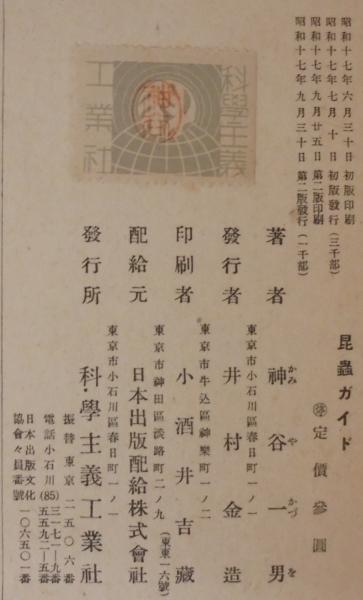 昆蟲ガイド
㊞定價參圓
昭和十七年六月三十日 初版印刷
昭和十七年七月十日 初版發行（三千部）
昭和十七年九月廿五日 第二版印刷
昭和十七年九月三十日 第二版發行（一千部）
科學主義
工業社
著者 神谷一男
かみ や かづ を
東京市小石川區春日町一ノ一
發行者 井村金造
東京市牛込區神樂町一ノ二
印刷者 小酒井吉藏
東京市神田區淡路町二ノ九（東東一六號）
配給元 日本出版配給株式會社
東京市小石川區春日町一ノ一
發行所 科學主義工業社
振替東京二一五〇六番
電話小石川(85)三一七一—九番
五五九二—五番
日本出版文化
協會々員番號 一〇六五〇一番